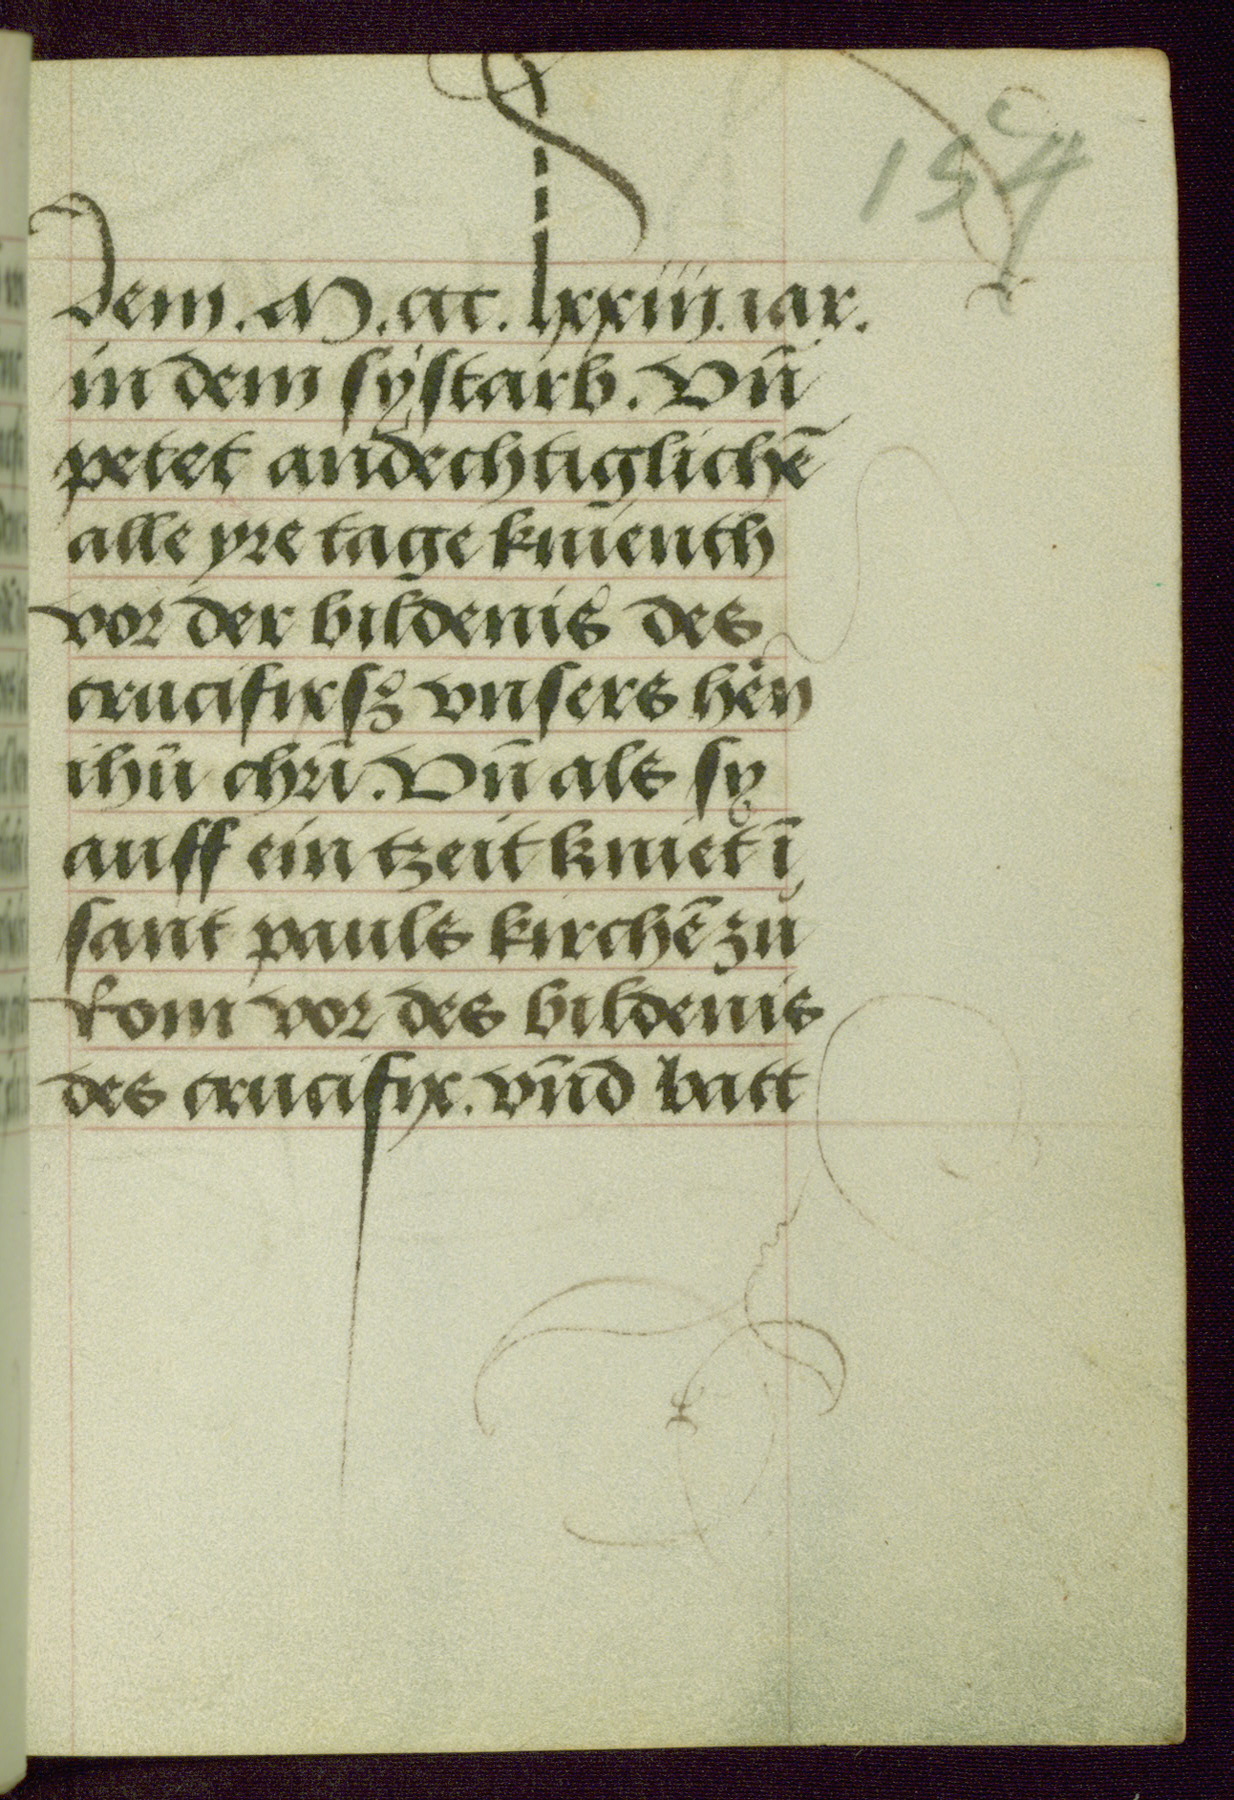 154
dem. M. ccc. lxxiij. iar.
in dem sÿ starb. Vn̄
petet andechtiglichē
alle yre tage knienth
vor der bildenis des
crucifixsz vnsers hērn
ihū chrī. Vn̄ als sy
auff ein tzeit kniet ī
sant pauls kirchē zu
Rom vor des bildenis
des crucifix. vn̄d batt